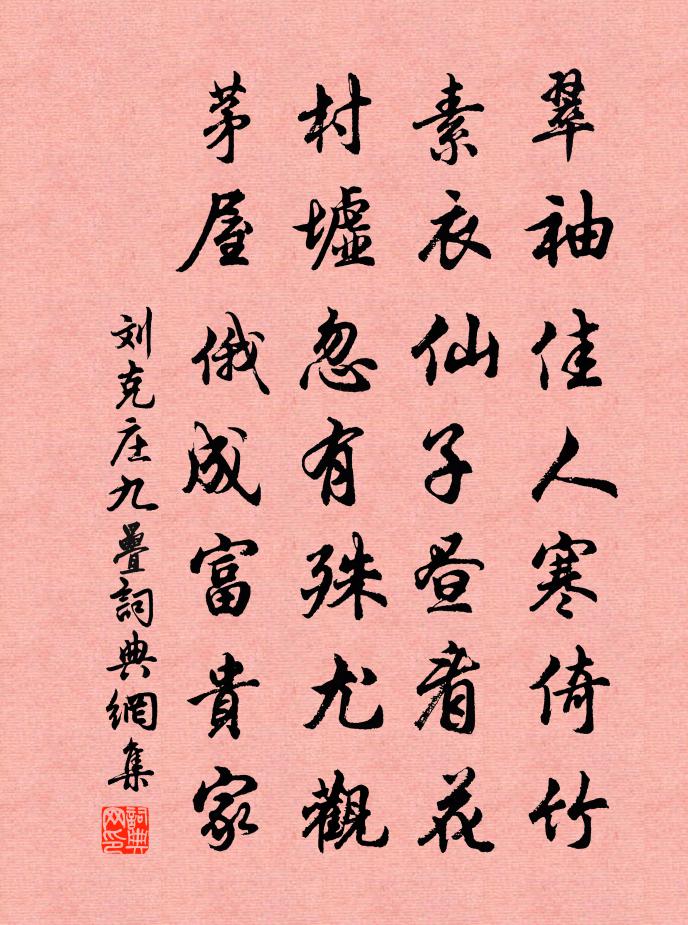 翠袖佳人寒倚竹
素衣仙子昼看花
村墟忽有殊尤觀
茅屋俄成富貴家
刘克庄九疊詞典網集
詞典
网印